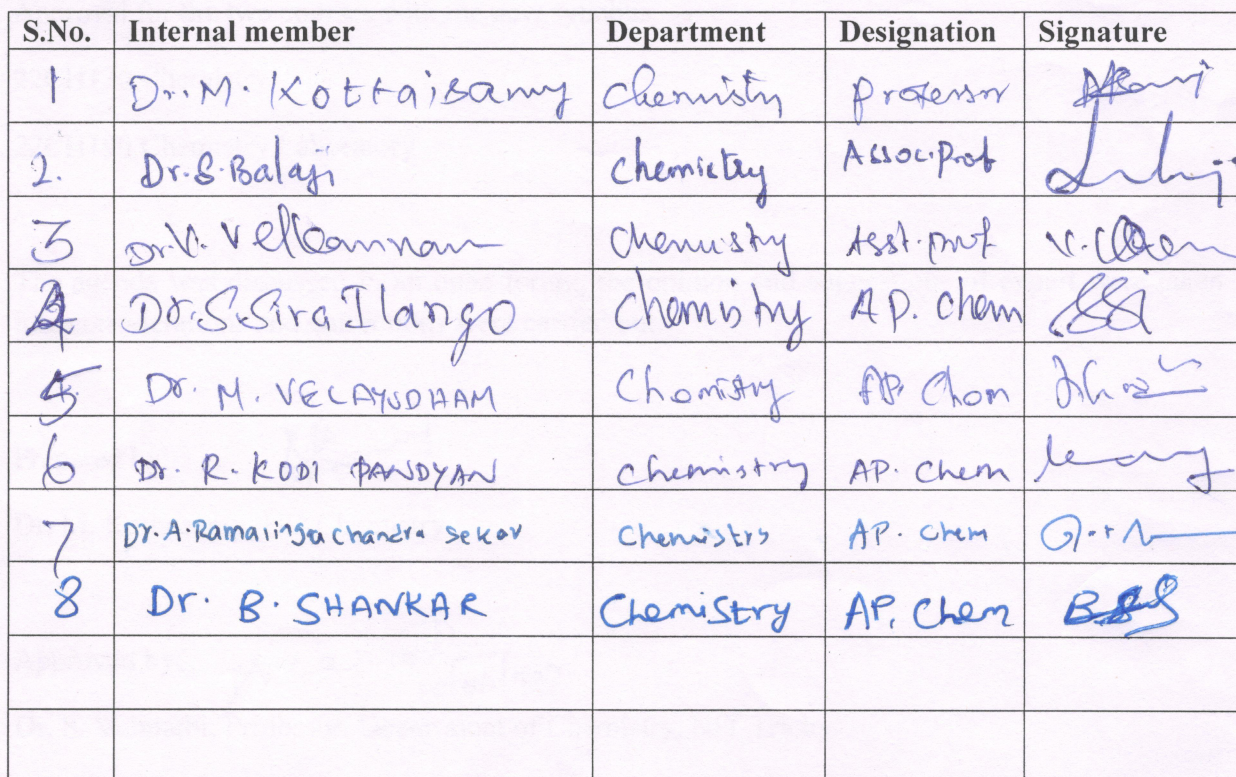 S.No. Internal member Department Designation Signature
1 Dr. M. Kottaisamy Chemistry Professor
2. Dr. S. Balaji Chemistry Assoc. Prof
3 Dr. V. Velkannan Chemistry Asst. prof
4 Dr. S. Siva Ilango Chemistry AP. Chem
5 Dr. M. VELAYUDHAM Chemistry AP. Chem
6 Dr. R. KODI PANDYAN Chemistry AP. Chem
7 Dr. A. Ramalinga chandra sekar Chemistry AP. Chem
8 Dr. B. SHANKAR Chemistry AP. Chem